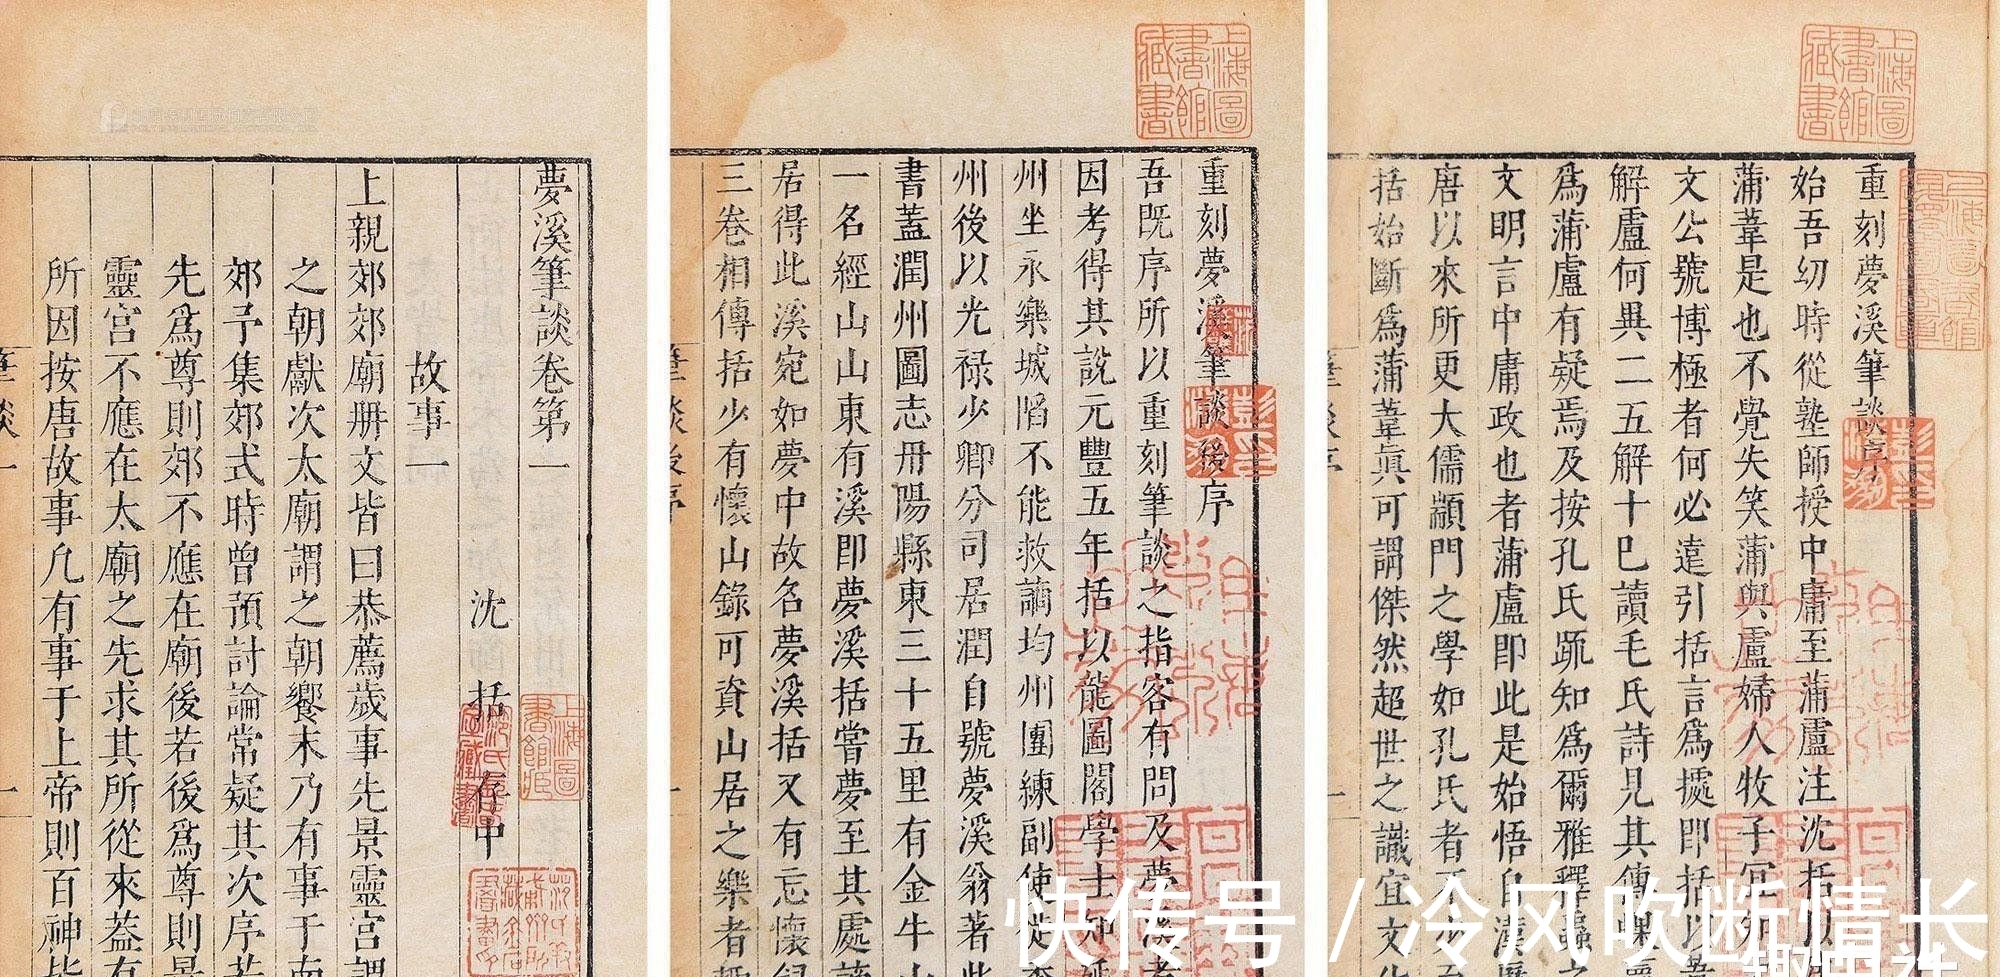 夢溪筆談卷第一
沈括存中
故事一
上親郊郊廟冊文皆曰恭薦歲事先景靈宮謂
之朝獻次太廟謂之朝饗末乃有事于南
郊予集郊式時曾預討論常疑其次序若
先爲尊則郊不應在廟後若後爲尊則景
靈宮不應在太廟之先求其所從來蓋有
所因按唐故事凢有事于上帝則百神皆
筆談一
一
上海圖書館藏書
重刻夢溪筆談後序
吾既序所以重刻筆談之指客有問及夢溪者
因考得其說元豐五年括以龍圖閣學士知延
州坐永樂城陷不能救謫均州團練副使從
州後以光祿少卿分司居潤自號夢溪翁著此
書蓋潤州圖志丹陽縣東三十五里有金牛山
一名經山山東有溪即夢溪括嘗夢至其處
居得此溪宛如夢中故名夢溪括又有忘懷録
三卷相傳括少有懷山錄可資山居之樂者
筆談後序
一
上海圖書館藏書
重刻夢溪筆談序
始吾幼時從塾師授中庸至蒲盧注沈括以
蒲葦是也不覺失笑蒲與盧婦人牧子
文公號博極者何必遠引括言爲據即括以
解盧何異二五解十巳讀毛氏詩見其傳
爲蒲盧有疑焉及按孔氏疏知爲爾雅釋蟲之
文明言中庸政也者蒲盧即此是始悟自漢
唐以來所更大儒顓門之學如孔氏者不少
括始斷爲蒲葦眞可謂傑然超世之識宜文
筆談序
一
快传号/冷风吹断情长